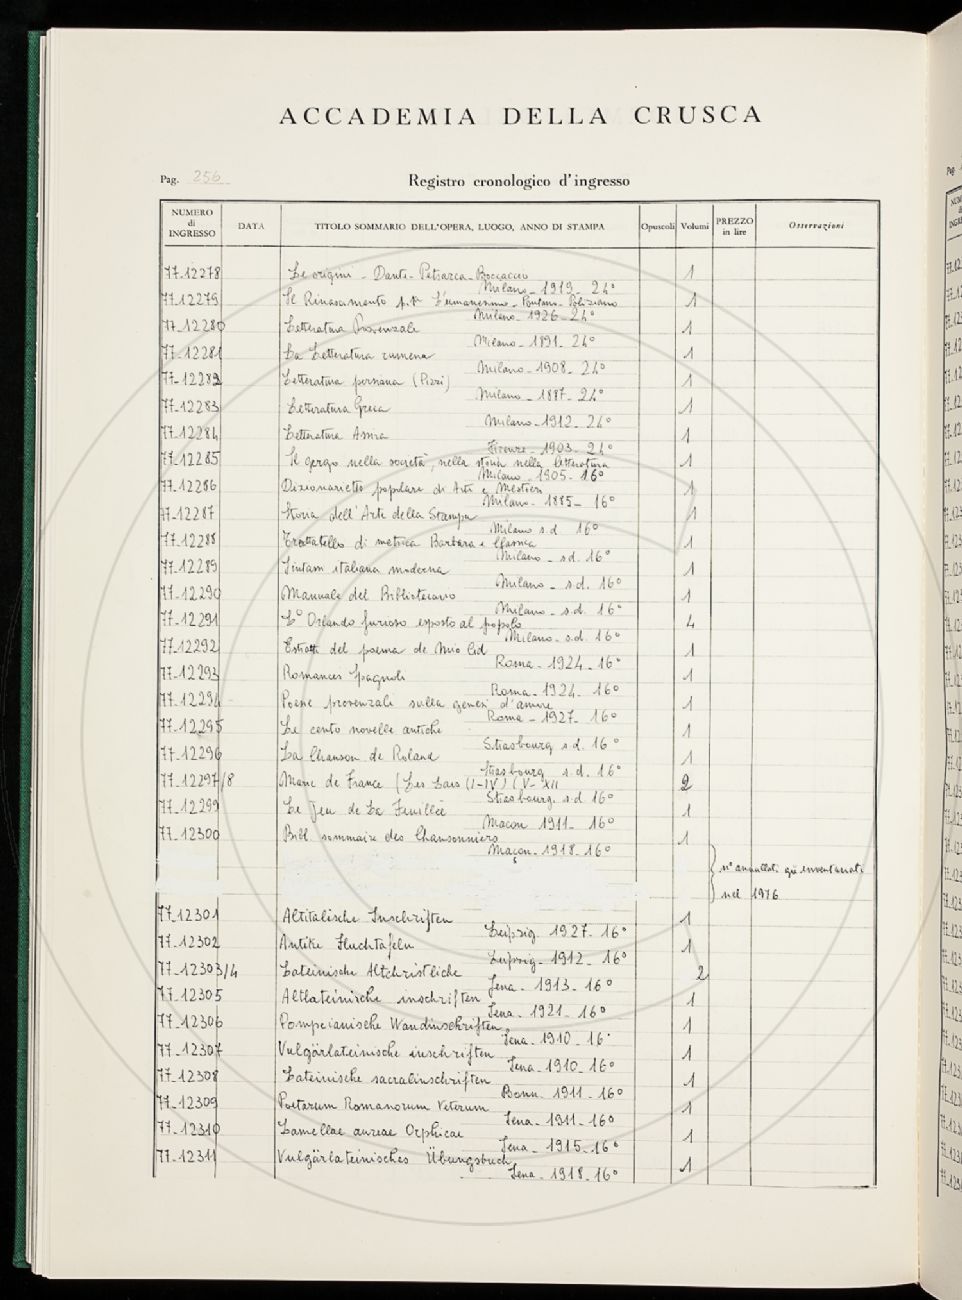 ACCADEMIA DELLA CRUSCA
Pag. 256
Registro cronologico d'ingresso
NUMERO di INGRESSO DATA TITOLO SOMMARIO DELL'OPERA, LUOGO, ANNO DI STAMPA Opuscoli Volumi PREZZO in lire Osservazioni
77-12278 Le origini - Dante - Petrarca - Boccaccio 1
Milano - 1919 - 24°
77-12279 Il Rinascimento p. I L'umanesimo - Pontano - Poliziano 1
Milano - 1926 - 24°
77-12280 Letteratura Provenzale 1
Milano - 1891 - 24°
77-12281 La Letteratura rumena 1
Milano - 1908 - 24°
77-12282 Letteratura persiana (Pizzi) 1
Milano - 1887 - 24°
77-12283 Letteratura Greca 1
Milano - 1912 - 24°
77-12284 Letteratura Assira 1
Firenze - 1903 - 24°
77-12285 Il gergo nella società, nella storia nella letteratura 1
Milano - 1905 - 16°
77-12286 Dizionarietto popolare di Arti e Mestieri 1
Milano - 1885 - 16°
77-12287 Storia dell'Arte della Stampa 1
Milano s.d. 16°
77-12288 Trattatello di metrica Barbara e Classica 1
Milano - s.d. 16°
77-12289 Sintassi italiana moderna 1
Milano - s.d. 16°
77-12290 Manuale del Bibliotecario 1
Milano - s.d. 16°
77-12291 L'Orlando furioso esposto al popolo 4
Milano - s.d. 16°
77-12292 Estratti del poema de Mio Cid 1
Roma - 1924 - 16°
77-12293 Romances Spagnoli 1
Roma - 1924 - 16°
77-12294 Poesie provenzali sulla genesi d'amore 1
Roma - 1927 - 16°
77-12295 Le cento novelle antiche 1
Strasbourg s.d. 16°
77-12296 La Chanson de Roland 1
Strasbourg s.d. 16°
77-12297/8 Marie de France (Les Lais (I-IV) (V-XII 2
Strasbourg. s.d. 16°
77-12299 Le Jeu de La Feuillée 1
Macon 1911 - 16°
77-12300 Bibl. sommaire des Chansonniers 1
Maçon - 1918 - 16°
n° annullati già inventariati
nel 1976
77-12301 Altitalische Inschriften 1
Leipzig - 1927 - 16°
77-12302 Antike Fluchtafeln 1
Leipzig - 1912 - 16°
77-12303/4 Lateinische Altchristliche 2
Jena - 1913 - 16°
77-12305 Altlateinische inschriften 1
Jena - 1921 - 16°
77-12306 Pompeianische Wandinschriften 1
Jena - 1910 - 16°
77-12307 Vulgärlateinische inschriften 1
Jena - 1910 - 16°
77-12308 Lateinische sacralinschriften 1
Bonn - 1911 - 16°
77-12309 Poetarum Romanorum Veterum 1
Jena - 1911 - 16°
77-12310 Lamellae aureae Orphicae 1
Jena - 1915 - 16°
77-12311 Vulgärlateinisches Übungsbuch 1
Jena - 1918 - 16°